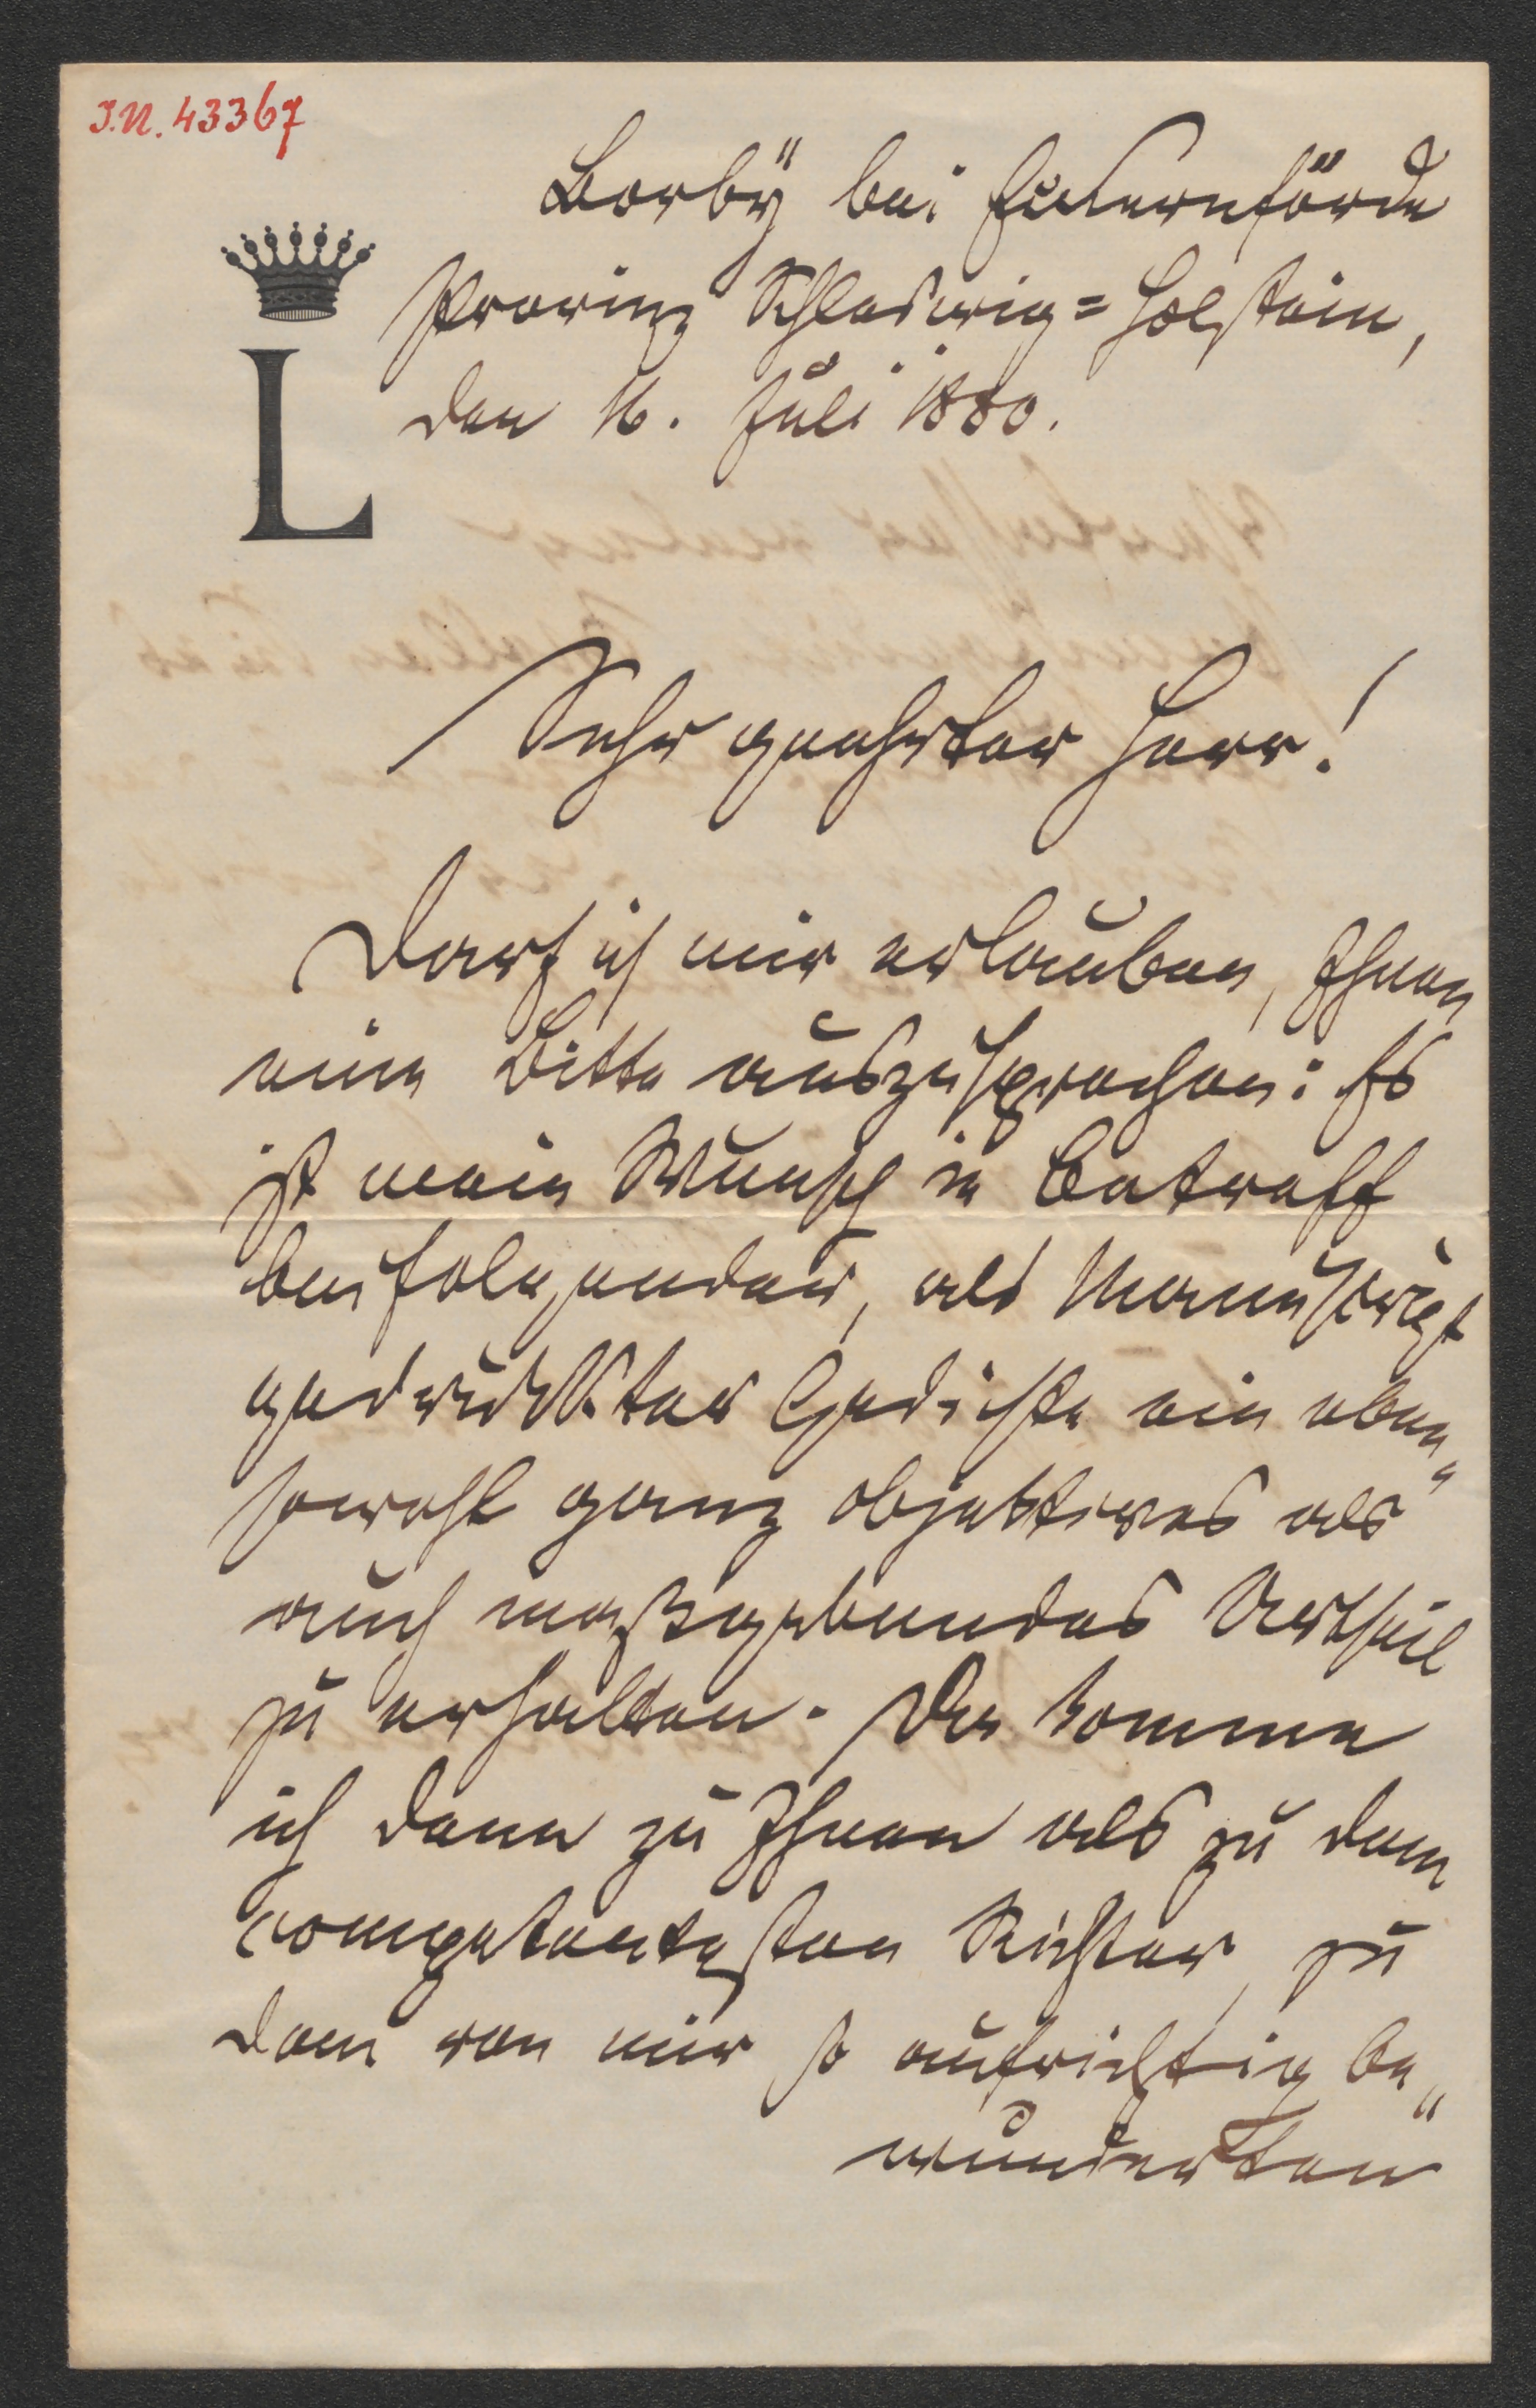 I.N. 43367
Borbÿ bei Eckernförde
Provinz Schleswig=Holstein,
den 16. Juli 1880.
L
Sehr geehrter Herr!
Darf ich mir erlauben, Ihnen
eine Bitte auszusprechen: Es
ist mein Wunsch in Betreff
beifolgender, als Manuskript
gedruckter Gedichte ein eben„
sowohl ganz objektives als
auch maßgebendes Urtheil
zu erhalten. Da komme
ich denn zu Ihnen als zu dem
competentesten Richter, zu
dem von mir so aufrichtig be„
wunderten